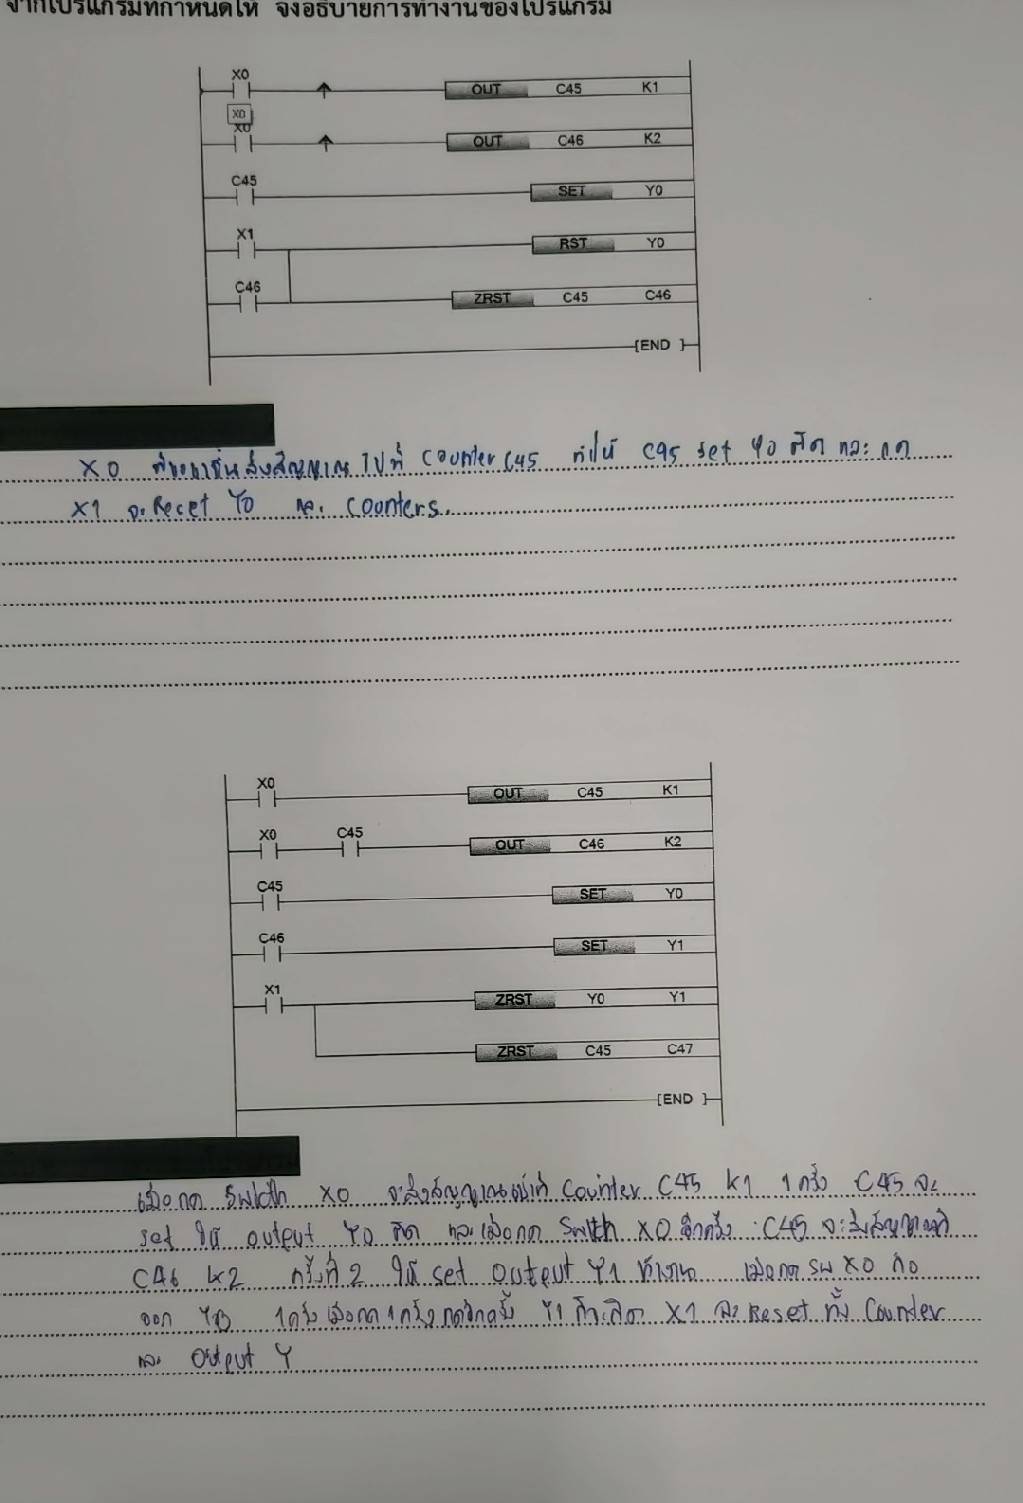 จากโปรแกรมที่กำหนดให้ จงอธิบายการทำงานของโปรแกรม
X0
OUT C45 K1
X0
X0
OUT C46 K2
C45
SET Y0
X1
RST Y0
C46
ZRST C45 C46
[END ]
X0 ส่งสัญญาณ ไปที่ Counter C45 ทำให้ C45 set Y0 ติด และ กด
X1 จะ Recet Y0 และ counters.
X0
OUT C45 K1
X0 C45
OUT C46 K2
C45
SET Y0
C46
SET Y1
X1
ZRST Y0 Y1
ZRST C45 C47
[END ]
เมื่อกด Switch X0 จะส่งสัญญาณ Counter C45 K1 1 ครั้ง C45 จะ
set ให้ output Y0 ติด และเมื่อกด Swith X0 อีกครั้ง C45 จะส่งสัญญาณ
C46 K2 ครั้งที่ 2 ให้ set Output Y1 ทำงาน เมื่อกด SW X0
1 ครั้ง Y1 X1 จะ Reset ทั้ง Counter
และ Output Y